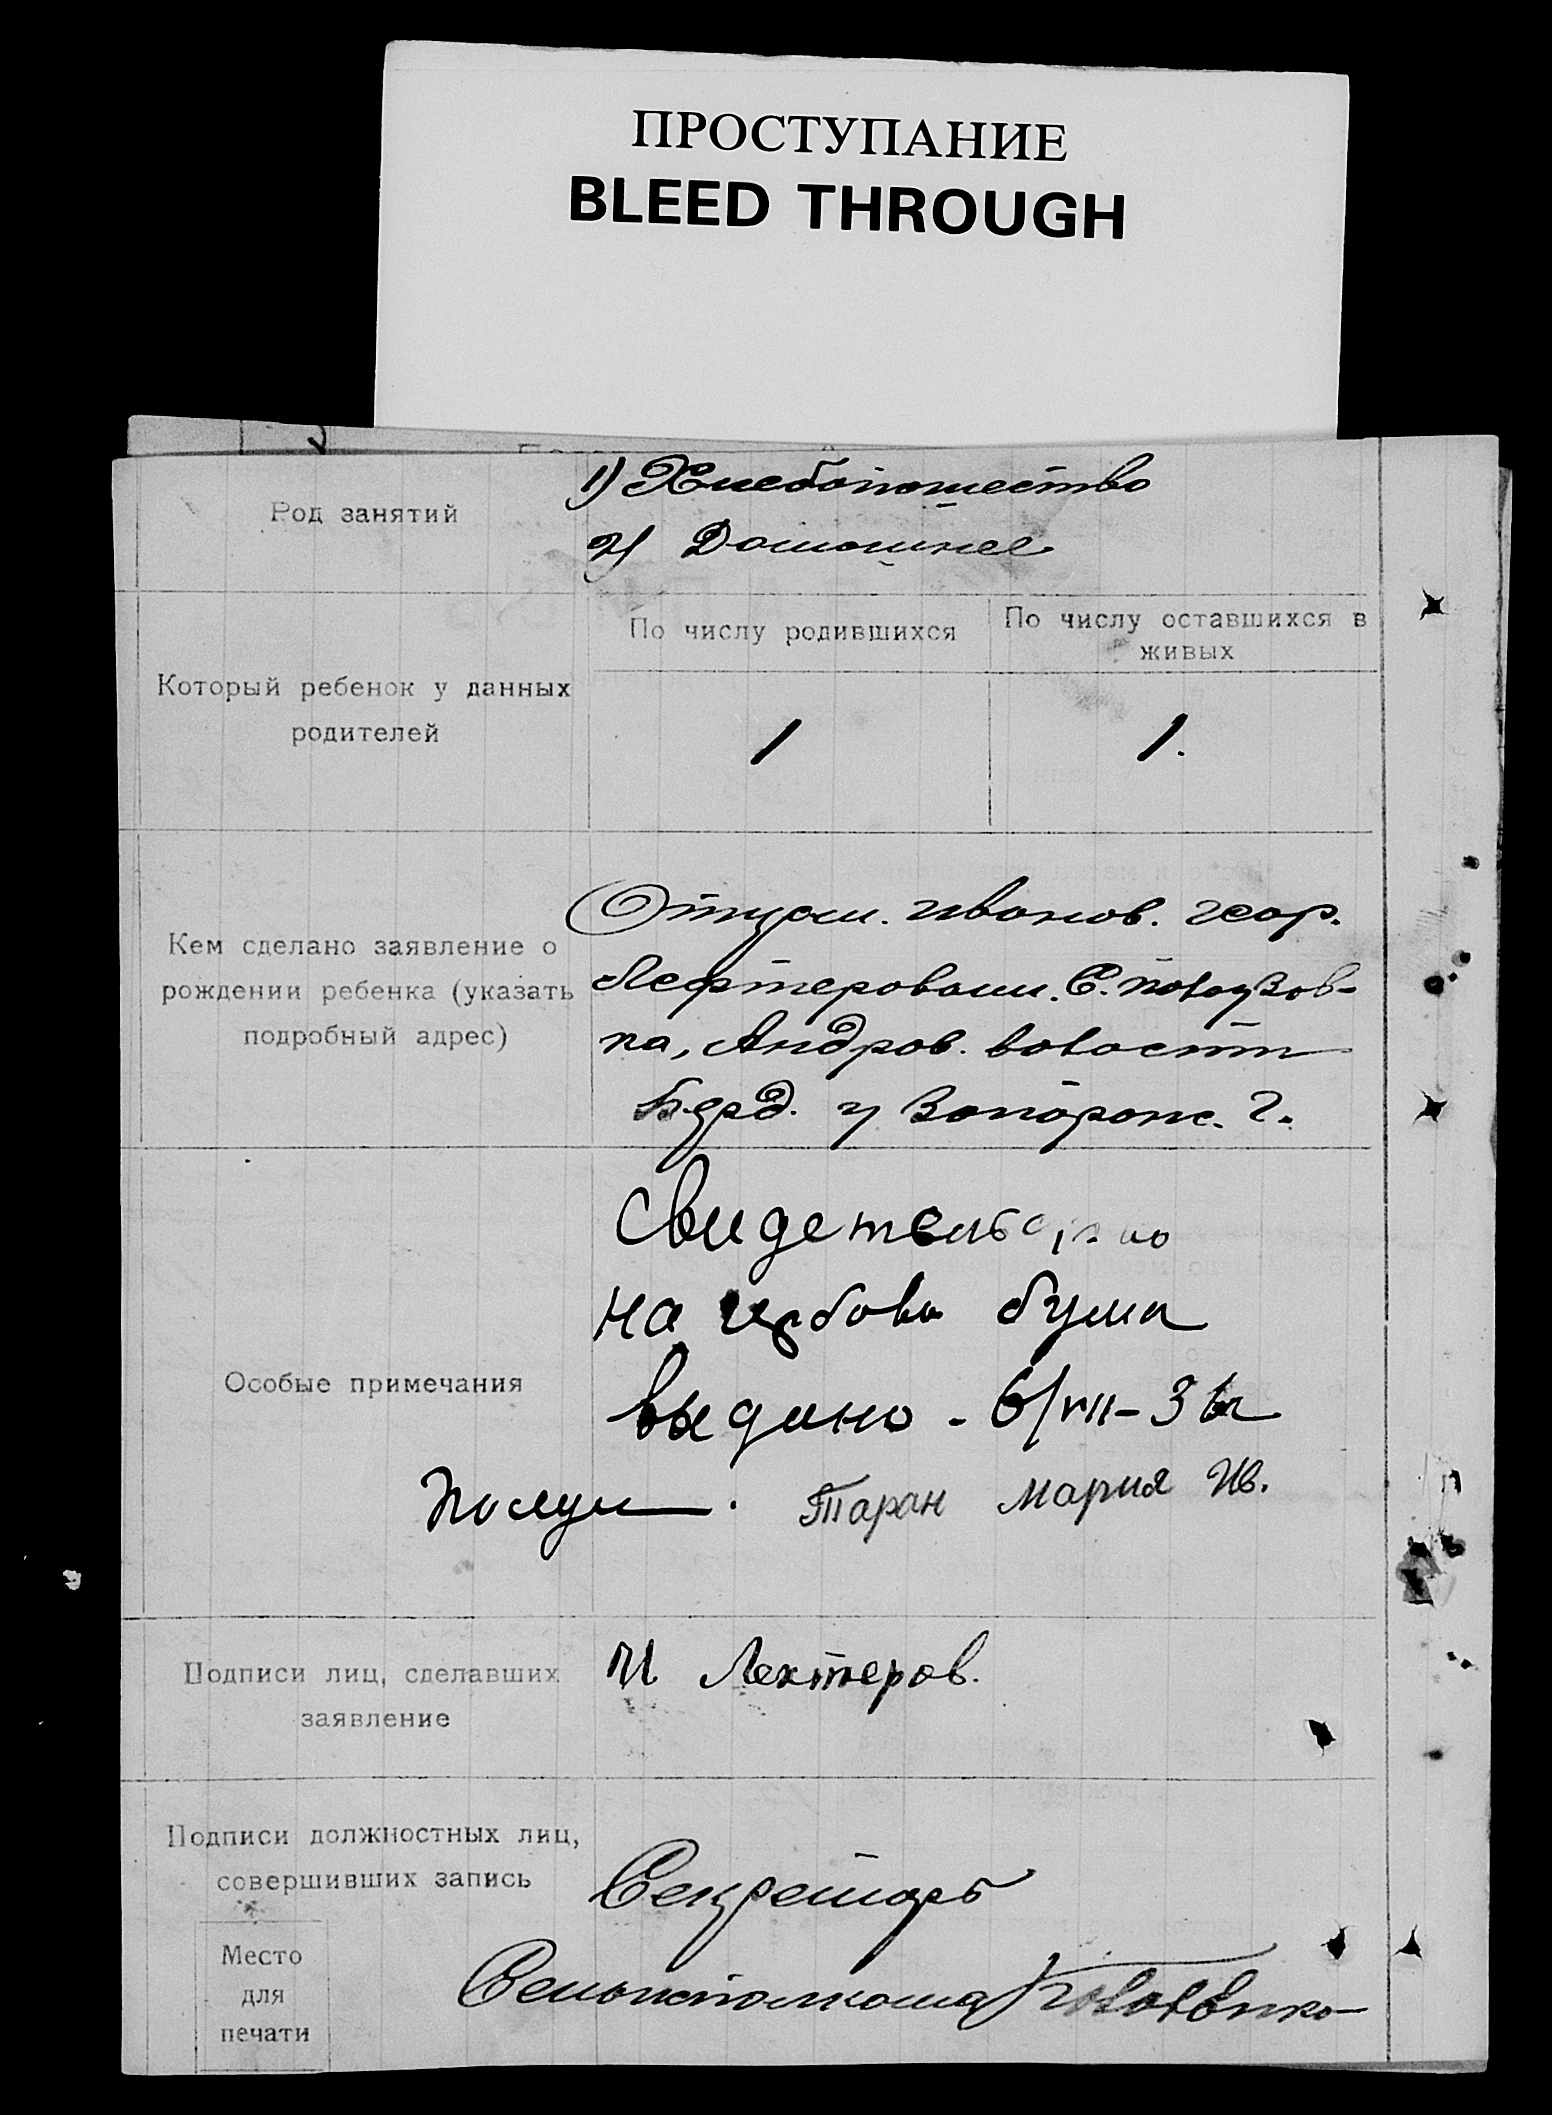 ПРОСТУПАНИЕ
BLEED THROUGH
Род занятий
1) Хлебопашество
2) Домашнее
Который ребенок у данных
родителей
По числу родившихся
По числу оставшихся в
живых
1
1.
Кем сделано заявление о
рождении ребенка (указать
подробный адрес)
Отцом. Иванов. Геор.
Лефтеровым. С.
ка, Андров. волости
Берд. у Запорож. г.
Особые примечания
Свидетельство
на гербовы бума
выдано - 6/VII-31г
Получ . Таран Мария Ив.
Подписи лиц, сделавших
заявление
И Лехтеров.
Подписи должностных лиц,
совершивших запись
Секретарь
Сельисполкома
Место
для
печати